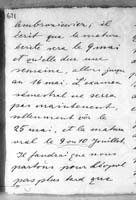 671
Ambroisewicz, il
écrit que la mature
écrite sera le 9 mai
et qu'elle dure une
semaine, allors jusqu'
au 16 mai. L'examen
semestral ne sera
pas maintenant,
seulement vers le
25 mai, et la matura
oral le 9 ou 10 Juillet.
Il faudrai que nous
partons pour
pas plus tard que